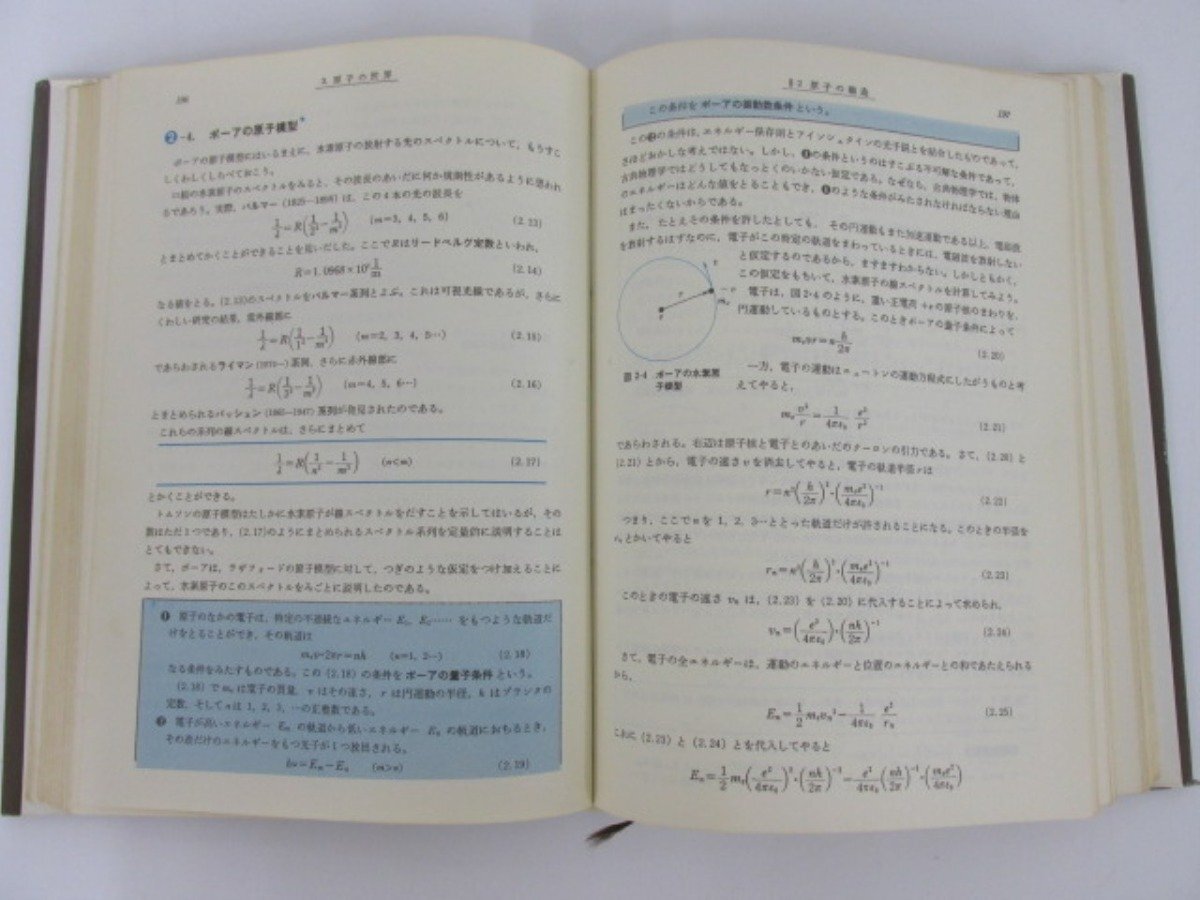 196
2. 原子の世界
❷-4. ボーアの原子模型*
ボーアの原子模型にはいるまえに，水素原子の放射する光のスペクトルについて，もうすこ
しくわしくしらべておこう。
の水素原子のスペクトルをみると，その波長のあいだに何か規則性があるように思われ
るであろう。実際，バルマー (1825—1898) は，この4本の光の波長を
1/λ=R(1/2²−1/m²) (m=3, 4, 5, 6) (2.13)
とまとめてかくことができることを見いだした。ここでRはリードベルヴ定数といわれ，
R=1.0968×10⁷ 1/m (2.14)
なる値をとる。(2.13)のスペクトルをバルマー系列とよぶ。これは可視光線であるが，さらに
くわしい研究の結果，紫外線部に
1/λ=R(1/1²−1/m²) (m=2, 3, 4, 5…) (2.15)
であらわされるライマン 系列，さらに赤外線部に
1/λ=R(1/3²−1/m²) (m=4, 5, 6…) (2.16)
とまとめられるパッシェン (1865—1947) 系列が発見されたのである。
これらの系列の線スペクトルは，さらにまとめて
1/λ=R(1/n²−1/m²) (n<m) (2.17)
とかくことができる。
トムソンの原子模型はたしかに水素原子が線スペクトルをだすことを示してはいるが，その
数はただ1つであり，(2.17)のようにまとめられるスペクトル系列を定量的に説明することは
とてもできない。
さて，ボーアは，ラザフォードの原子模型に対して，つぎのような仮定をつけ加えることに
よって，水素原子のこのスペクトルをみごとに説明したのである。
❶ 原子のなかの電子は，特定の不連続なエネルギー E₁, E₂…… をもつような軌道だ
けをとることができ，その軌道は
mₑv·2πr=nh (n=1, 2…) (2.18)
なる条件をみたすものである。この (2.18) の条件を ボーアの量子条件 という。
(2.18) で mₑ は電子の質量，v はその速さ，r は円運動の半径，h はプランクの
定数，そして n は 1, 2, 3, …の正整数である。
❷ 電子が高いエネルギー Eₘ の軌道から低いエネルギー Eₙ の軌道におちるとき，
その差だけのエネルギーをもつ光子が1つ放出される。
hν=Eₘ−Eₙ (m>n) (2.19)
§2 原子の構造
197
この条件を ボーアの振動数条件 という。
この❷の条件は，エネルギー保存則とアインシュタインの光子説とを結合したものであって，
さほどおかしな考えではない。しかし，❶の条件というのはすこぶる不可解な条件であって，
古典物理学ではどうしてもなっとくのいかない仮定である。なぜなら，古典物理学では，物体
のエネルギーはどんな値をとることもでき，❶のような条件がみたされなければならない理由
はまったくないからである。
また，たとえその条件を許したとしても，その円運動もまた加速運動である以上，電磁波
を放射するはずなのに，電子がこの特定の軌道をまわっているときには，電磁波を放射しない
と仮定するのであるから，ますますわからない。しかしともかく，
この仮定をもちいて，水素原子の線スペクトルを計算してみよう。
電子は，図2·4のように，重い正電荷 +e の原子核のまわりを，
円運動しているものとする。このときボーアの量子条件によって
mₑvr=n h/2π (2.20)
図 2-4 ボーアの水素原
子模型
一方，電子の運動はニュートンの運動方程式にしたがうものと考
えてやると，
mₑ v²/r = 1/4πε₀ e²/r² (2.21)
であらわされる。右辺は原子核と電子とのあいだのクーロンの引力である。さて，(2.20) と
(2.21) とから，電子の速さ v を消去してやると，電子の軌道半径 r は
r=n²(h/2π)²·(mₑe²/4πε₀)⁻¹ (2.22)
つまり，ここで n を 1, 2, 3…ととった軌道だけが許されることになる。このときの半径を
rₙ とかいてやると
rₙ=n²(h/2π)²·(mₑe²/4πε₀)⁻¹ (2.23)
このときの電子の速さ vₙ は，(2.23) を (2.20) に代入することによって求められ，
vₙ=(e²/4πε₀)·(nh/2π)⁻¹ (2.24)
さて，電子の全エネルギーは，運動のエネルギーと位置のエネルギーとの和であたえられる
から，
Eₙ=1/2 mₑvₙ²−1/4πε₀ e²/rₙ (2.25)
これに (2.23) と (2.24) とを代入してやると
Eₙ=1/2 mₑ(e²/4πε₀)²·(nh/2π)⁻²−e²/4πε₀(nh/2π)⁻²·(mₑe²/4πε₀)